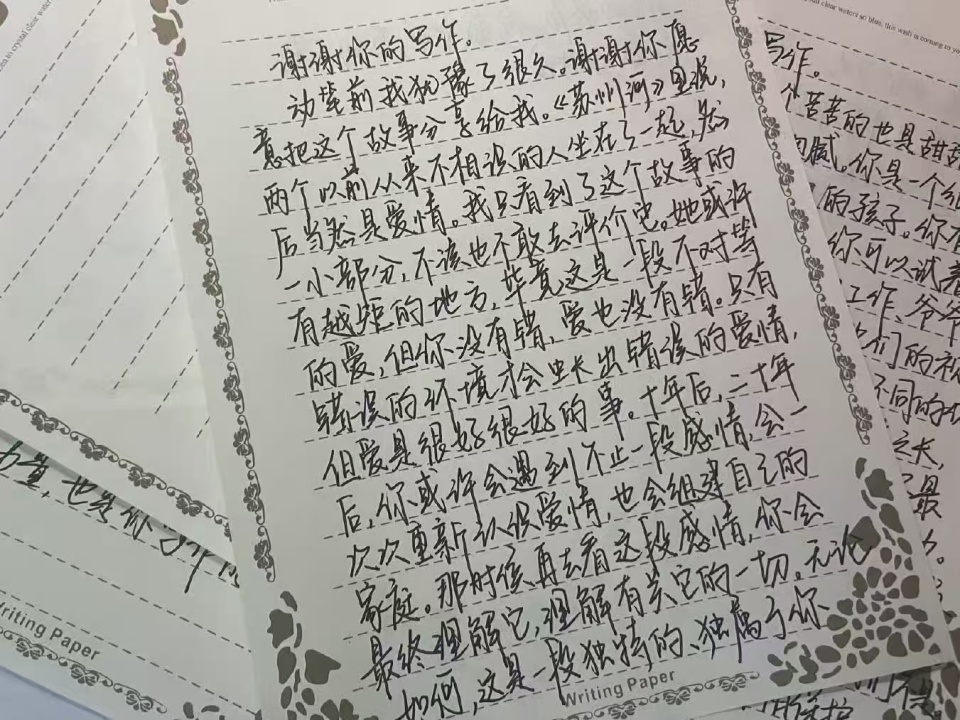 谢谢你的写作。
动笔前我犹豫了很久。谢谢你愿
意把这个故事分享给我。《苏州河》里说，
两个以前从来不相识的人坐在了一起，然
后当然是爱情。我只看到了这个故事的
一小部分，不该也不敢去评价它。她或许
有越矩的地方，毕竟这是一段不对等
的爱，但你没有错，爱也没有错。只有
错误的环境才会生长出错误的爱情，
但爱是很好很好的事。十年后，二十年
后，你或许会遇到不止一段感情，会一
次次重新认识爱情，也会组建自己的
家庭。那时候再去看这段感情，你会
最终理解它，理解有关它的一切。无论
如何，这是一段独特的、独属于你
Writing Paper
写作。
个苦苦的也是甜甜
腻。你是一个
的孩子。你有
你可以试着
工作、爷爷
们的祝
不同的
之长，
最
也许你
Writing Paper